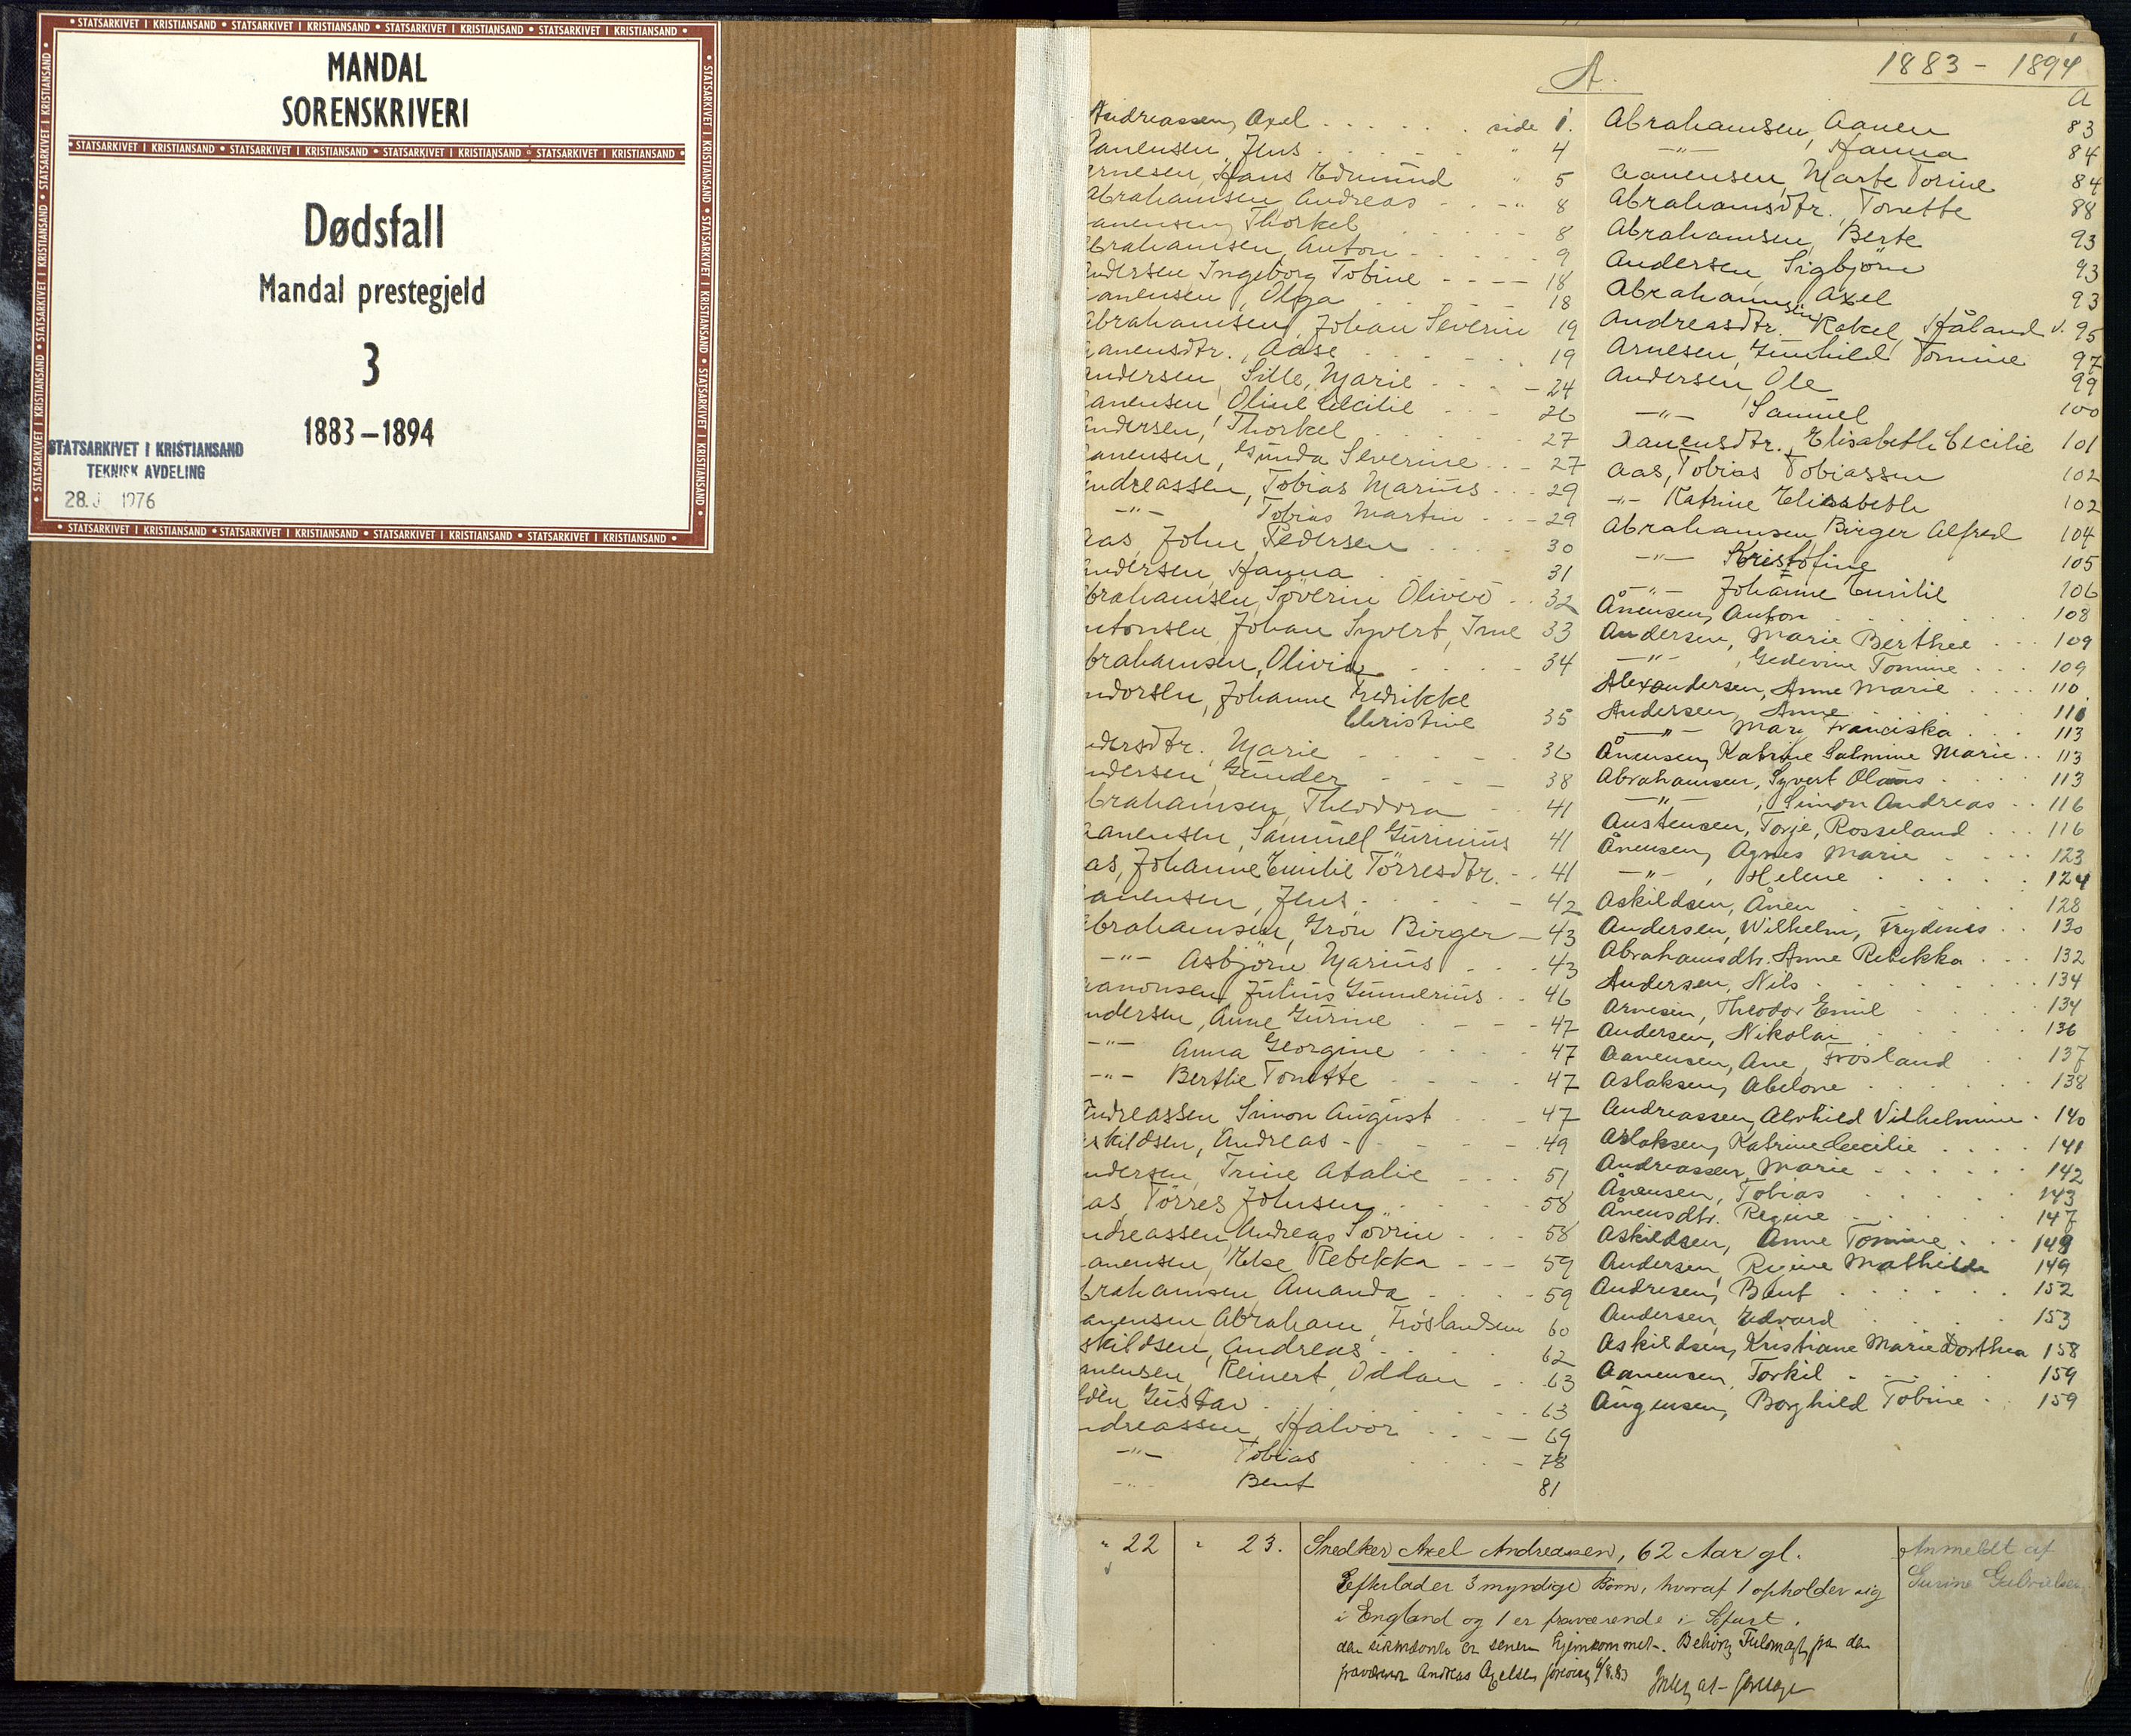 MANDAL
SORENSKRIVERI
Dødsfall
Mandal prestegjeld
3
1883-1894
STATSARKIVET I KRISTIANSAND
TEKNISK AVDELING
28. J 1976
1883 - 1894
A.
a
Andreassen, Axel . . . . . . side 1.
Aanensen, Jens " 4
Arnesen, Hans Edmund " 5
Abrahamsen, Andreas - . - " 8
Aanensen, Thorkel 8
Abrahamsen, Anton 9
Andersen Ingeborg Tobine - - - 18
Aanensen, Olga 18
Abrahamsen, Johan Severin 19
Aanensdtr., Aase 19
Andersen, Sille, Marie - 24
Aanensen, Oline Cecilie 26
Andersen, Thorkel 27
Aanensen, Gunda Severine - 27
Andreassen, Tobias Marius 29
-"- Tobias Martin - 29
Aas, John Pedersen 30
Andersen, Hanna 31
Abrahamsen, Söverin Oliver 32
Antonsen, Johan Syvert, Ime 33
Abrahamsen, Olivia 34
Andorsen, Johanne Fredrikke
Christine 35
Andersdtr. Marie 36
Andersen, Gunder 38
Abrahamsen, Theodora 41
Aanensen, Samuel Gurinius 41
Aas, Johanne Emilie Törresdtr. - 41
Aanensen, Jens - 42
Abrahamsen, Grön Birger - 43
-"- Asbjörn Marius 43
Aanonsen, Julius Gunnerius 46
Andersen, Anne Gurine 47
-"- Anna Georgine 47
-"- Berthe Tonette 47
Andreassen Simon August 47
Askildsen, Andreas - 49
Andersen, Trine Atalie 51
Aas, Törres Johnsen 58
Andreassen, Andreas Sövrin 58
Aanensen, Else Rebekka - - - 59
Abrahamsen, Amanda 59
Aanensen, Abraham, Fröslandsen 60
Askildsen, Andreas 62
Aanensen, Reinert, Oddan 63
Gustav 63
Andreassen, Halvor 69
-"- Tobias 78
-"- Bent 81
Abrahamsen, Aanen 83
-"- Hanna 84
Aanensen, Marte Torine 84
Abrahamsdtr., Tonette 88
Abrahamsen, Berte 93
Andersen, Sigbjörn 93
Abrahamsen, Axel 93
Andreasdtr. Rakel, Håland v. 95
Arnesen, Gunhild Tomine 97
Andersen, Ole 99
-"- Samuel 100
Aanensdtr., Elisabeth Cecilie 101
Aas, Tobias Tobiassen 102
-"- Katrine Elisabeth 102
Abrahamsen, Birger Alfred 104
-"- Kristofine 105
-"- Johanne Emilie 106
Ånensen, Anton 108
Andersen, Marie Berthea 109
-"- , Gedevine Tomine 109
Alexandersen, Anne Marie 110
Andersen, Anne 110
-"- Mary Franciska 113
Ånensen, Katrine Salmine Marie 113
Abrahamsen, Syvert Olaus 113
-"- , Simon Andreas 116
Austensen, Torje, Rosseland 116
Ånensen, Agnes Marie 123
-"- , Helene 124
Askildsen, Ånen 128
Andersen, Wilhelm, Frydenæs 130
Abrahamsdtr. Anne Rebekka 132
Andersen, Nils 134
Arnesen, Theodor Emil 134
Andersen, Nikolai 136
Aanensen, Ane, Frösland 137
Aslaksen, Abelone 138
Andreassen, Alvhild Vilhelmine 140
Aslaksen, Katrine Cecilie 141
Andreassen, Marie 142
Ånensen, Tobias 143
Ånensdtr. Regine 147
Askildsen, Anne Tomine 149
Andersen, Regine Mathilde 149
Andresen, Bent 152
Andersen, Edvard 153
Askildsen, Kristiane Marie Dorthea 158
Aanensen, Torkil 159
Augensen, Borghild Tobine 159
" 22 " 23. Snedker Axel Andreassen, 62 Aar gl.
Efterlader 3 myndige Børn, hvoraf 1 opholder sig
i England og 1 er fraværende i
den er senere hjemkommet. Behörig Fuldmagt fra den
fraværende Andreas Axelsen 8.83
Anmeldt af
Surine Gabrielsen